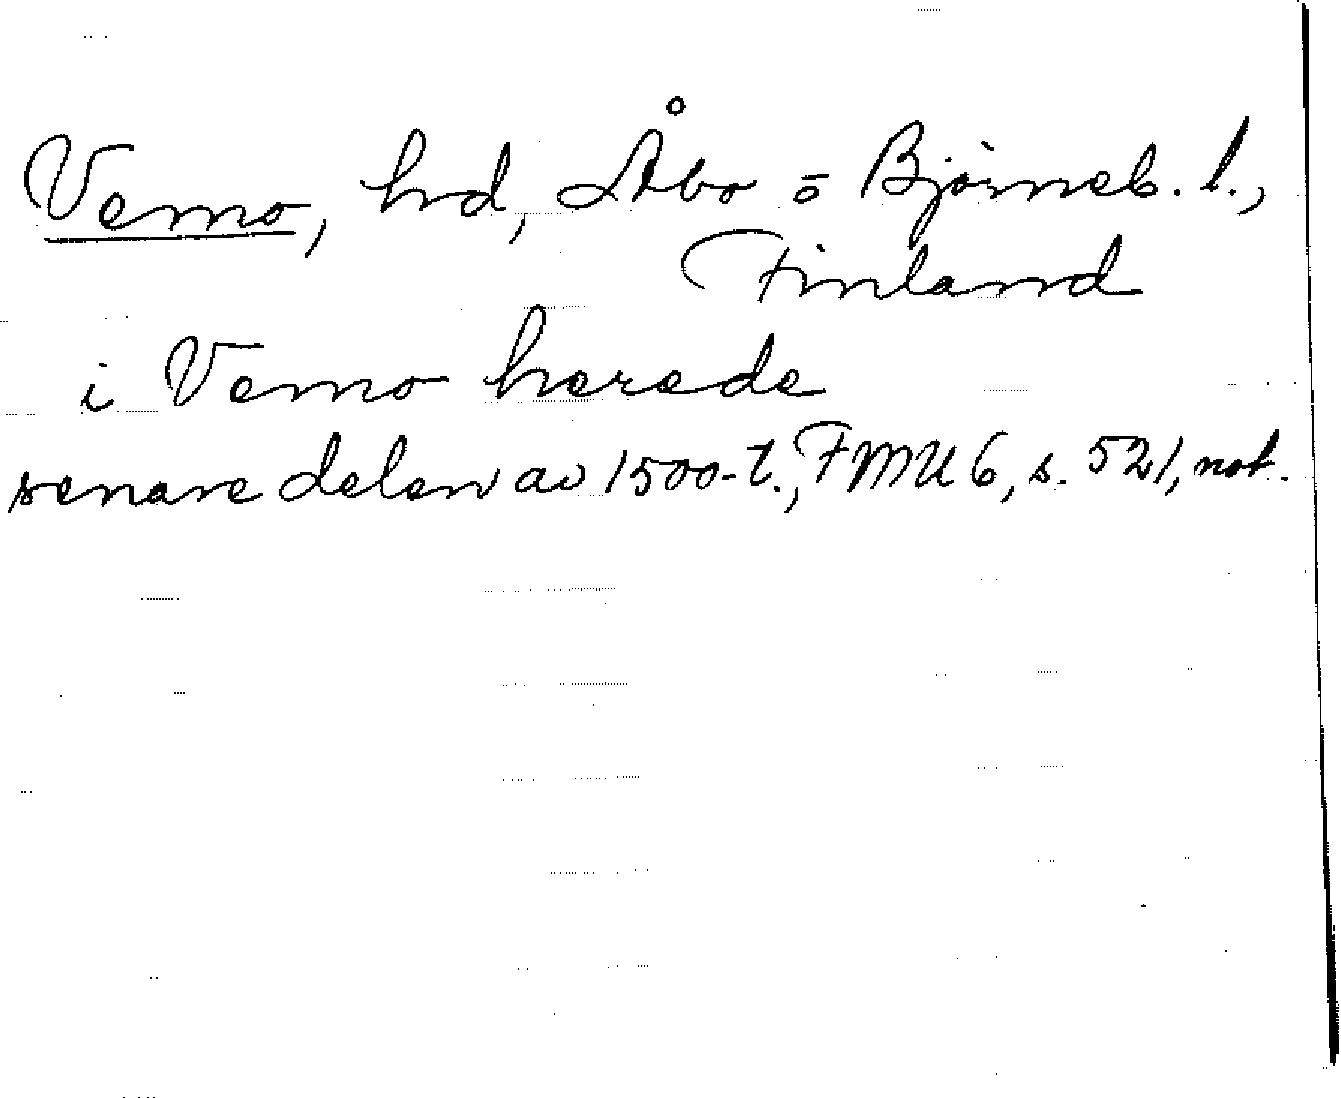 Vemo, hd, Åbo o Björneb. l.,
Finland
i Vemo herade
senare delen av 1500-t., FMU 6, s. 521, not.